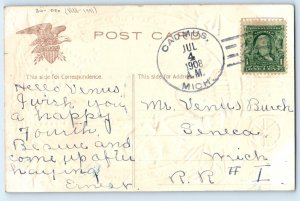 POST CARD
This side for Correspondence.
This side is for Address.
CADMUS,
JUL
4
1908
A.M.
MICH.
Hello Venus,
I wish you
a happy
Fourth.
Be sure and
come up after
haying
Ernest.
Mr Venus Burch
Seneca
Mich
R.R. # 1